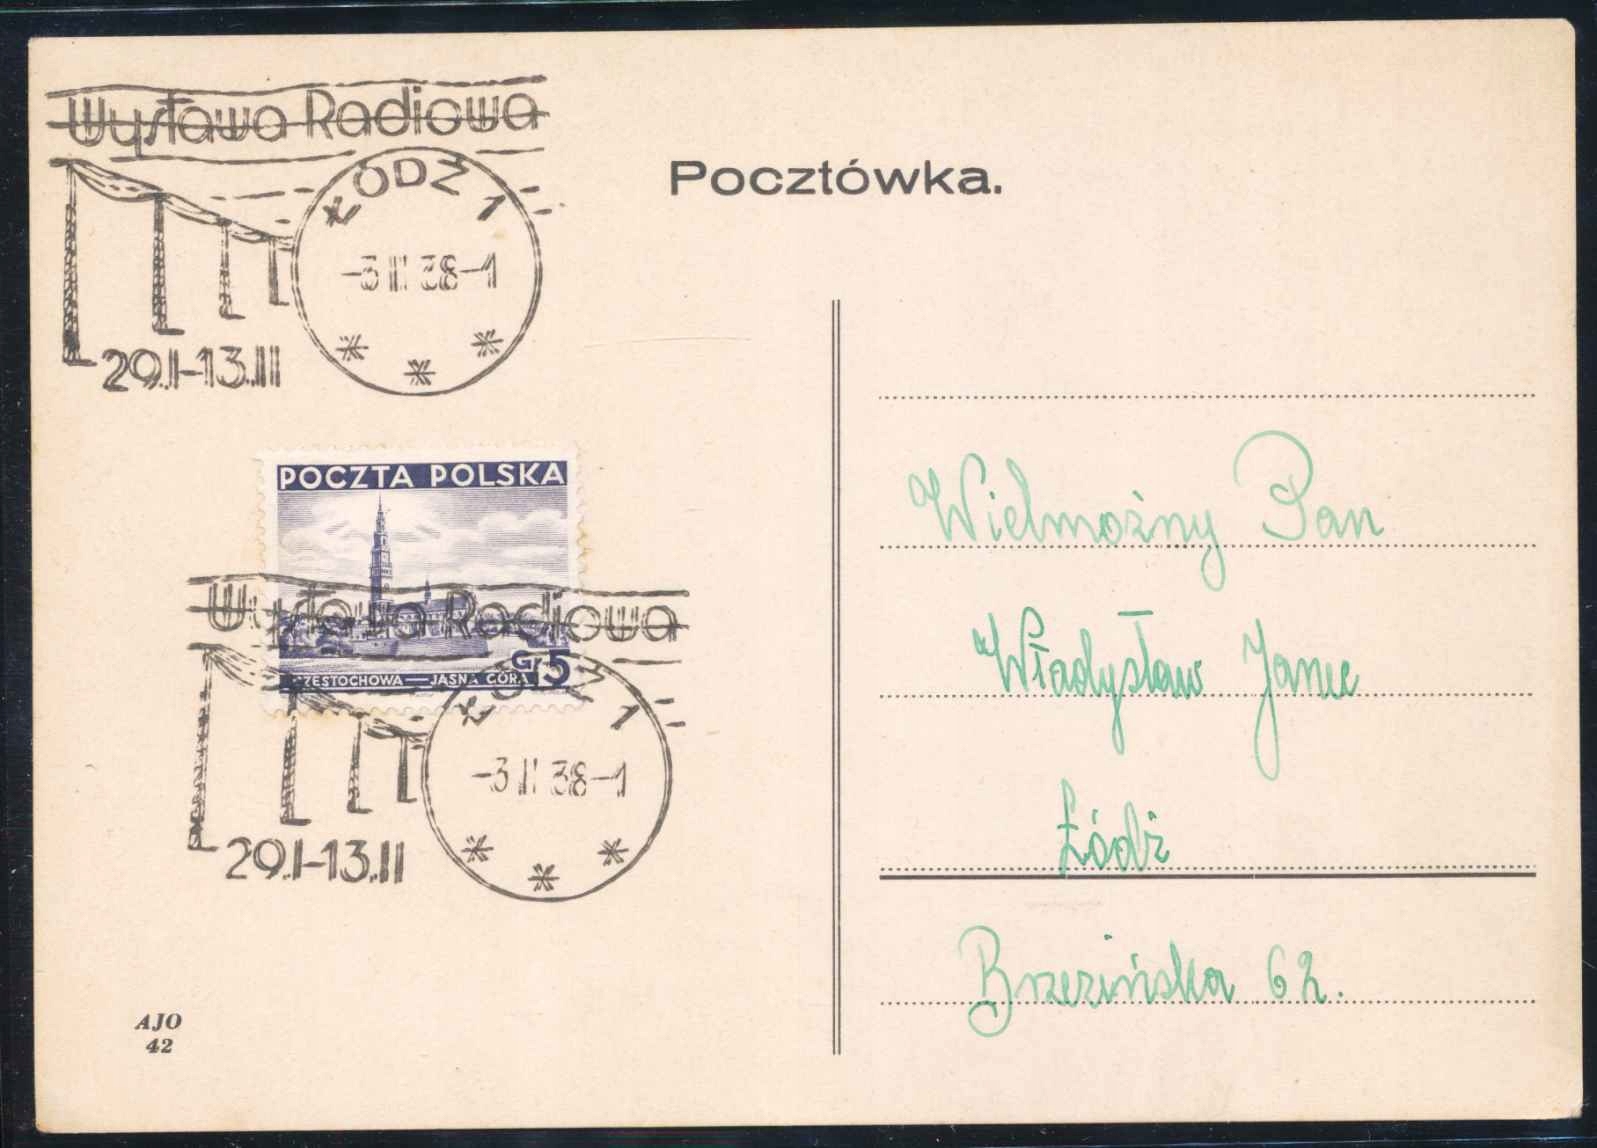 Wystawa Radiowa
ŁÓDŹ 1
-3 II 38-1
* * *
29.I-13.II
Pocztówka.
POCZTA POLSKA
Gr 5
CZĘSTOCHOWA — JASNA GÓRA
Wystawa Radiowa
ŁÓDŹ 1
-3 II 38-1
* * *
29.I-13.II
AJO
42
Wielmożny Pan
Władysław Janec
Łódź
Brzezińska 62.